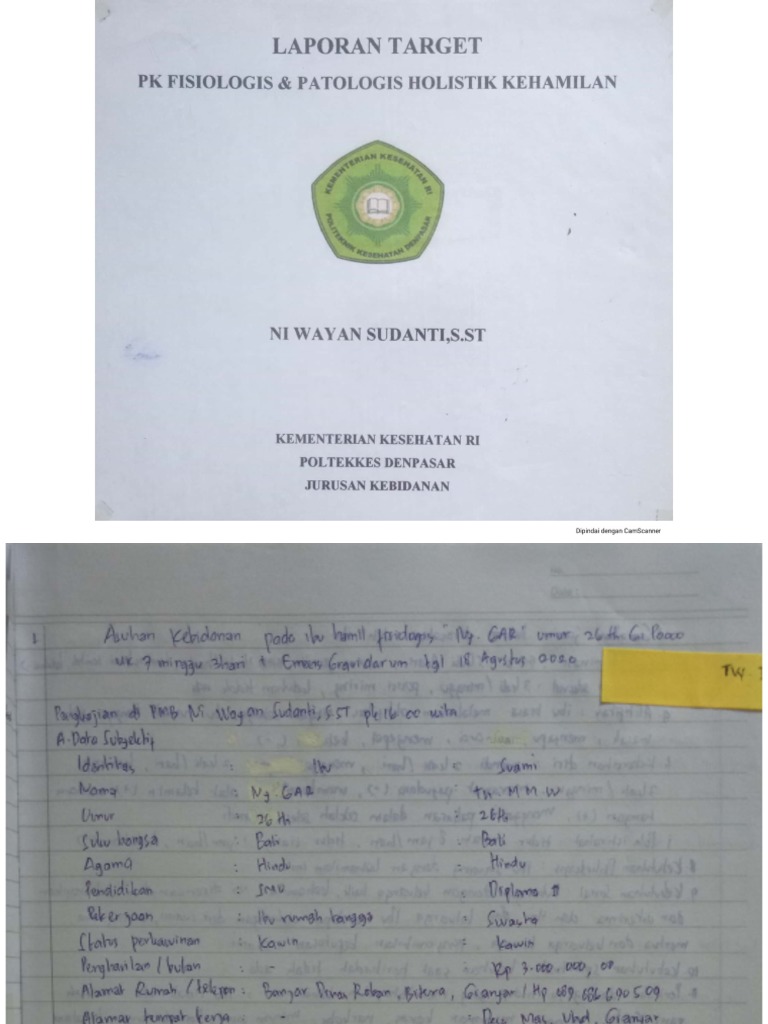 LAPORAN TARGET
PK FISIOLOGIS & PATOLOGIS HOLISTIK KEHAMILAN
KEMENTERIAN KESEHATAN RI
POLITEKNIK KESEHATAN DENPASAR
NI WAYAN SUDANTI,S.ST
KEMENTERIAN KESEHATAN RI
POLTEKKES DENPASAR
JURUSAN KEBIDANAN
Dipindai dengan CamScanner
1 Asuhan Kebidanan pada ibu hamil fisiologis "Ny. GAR" umur 26 th G1 P0000
UK 7 minggu 3 hari + Emesis Gravidarum tgl 18 Agustus 2020
TW.
Pengkajian di PMB Ni Wayan Sudanti, S.ST pk 16.00 wita
A. Data Subyektif
Identitas : Ibu : Suami
Nama : Ny. GAR Tn. M M W
Umur : 26 th : 28 th
Suku bangsa : Bali : Bali
Agama : Hindu : Hindu
Pendidikan : SMU : Diploma
Pekerjaan : Ibu rumah tangga : Swasta
Status perkawinan : Kawin : Kawin
Penghasilan / bulan : - : Rp 3.000.000,00
Alamat Rumah / telepon : Banjar Dinas Roban, Bitera, Gianyar / Hp 089 686 690 509
Alamat tempat kerja : - : Desa Mas, Ubd, Gianyar